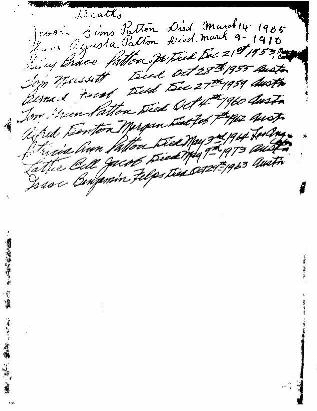 Deaths
Sims Patton Died March 14 1905
Augusta Patton Died March 9 - 1910
Grace Patton, Died Dec 21st 1953,
Tom Died Oct 28th 1955 Austin
Bernard Died Dec 27th 1959 Austin
Tom Green Patton Died Oct 4th 1960 Austin
Alfred Denton Morgan Died Feb 7th 1962 Austin
Patricia Ann Patton Died May 3rd 1964
Lottie Bell Jacob Died May 9th 1973 Austin
Isaac Benjamin Felps Died Oct 29th 1963 Austin